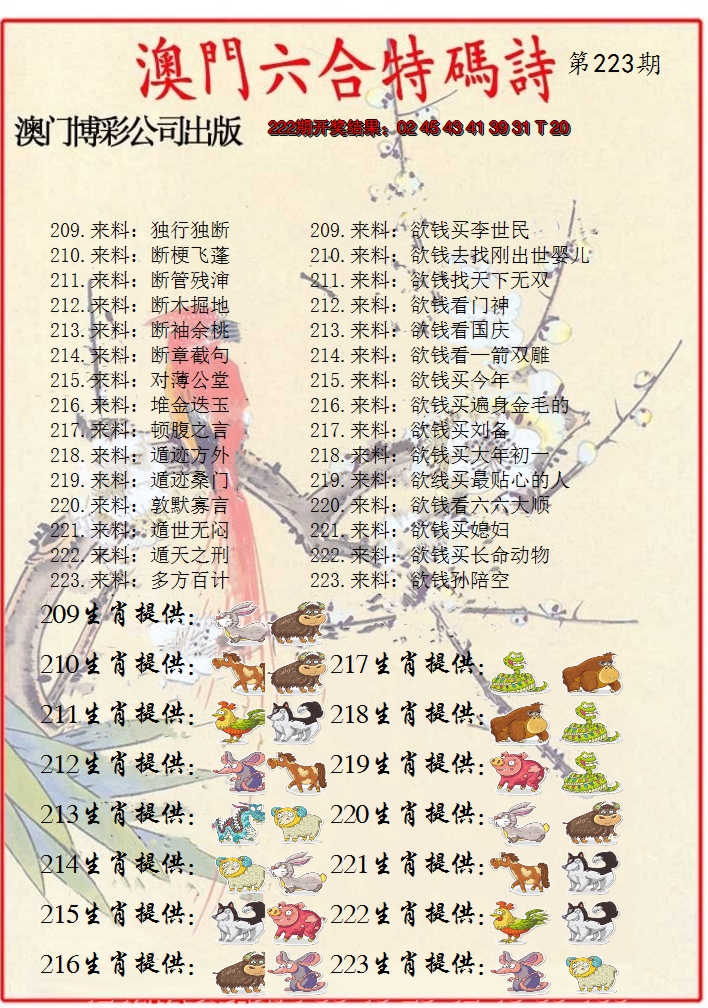 澳門六合特碼詩 第223期
澳门博彩公司出版 222期开奖结果：02 45 43 41 39 31 T 20
209.来料：独行独断 209.来料：欲钱买李世民
210.来料：断梗飞蓬 210.来料：欲钱去找刚出世婴儿
211.来料：断管残渖 211.来料：欲钱找天下无双
212.来料：断木掘地 212.来料：欲钱看门神
213.来料：断袖余桃 213.来料：欲钱看国庆
214.来料：断章截句 214.来料：欲钱看一箭双雕
215.来料：对薄公堂 215.来料：欲钱买今年
216.来料：堆金迭玉 216.来料：欲钱买遍身金毛的
217.来料：顿腹之言 217.来料：欲钱买刘备
218.来料：遁迹方外 218.来料：欲钱买大年初一
219.来料：遁迹桑门 219.来料：欲线买最贴心的人
220.来料：敦默寡言 220.来料：欲钱看六六大顺
221.来料：遁世无闷 221.来料：欲钱买媳妇
222.来料：遁天之刑 222.来料：欲钱买长命动物
223.来料：多方百计 223.来料：欲钱孙陪空
209生肖提供：
210生肖提供： 217生肖提供：
211生肖提供： 218生肖提供：
212生肖提供： 219生肖提供：
213生肖提供： 220生肖提供：
214生肖提供： 221生肖提供：
215生肖提供： 222生肖提供：
216生肖提供： 223生肖提供：